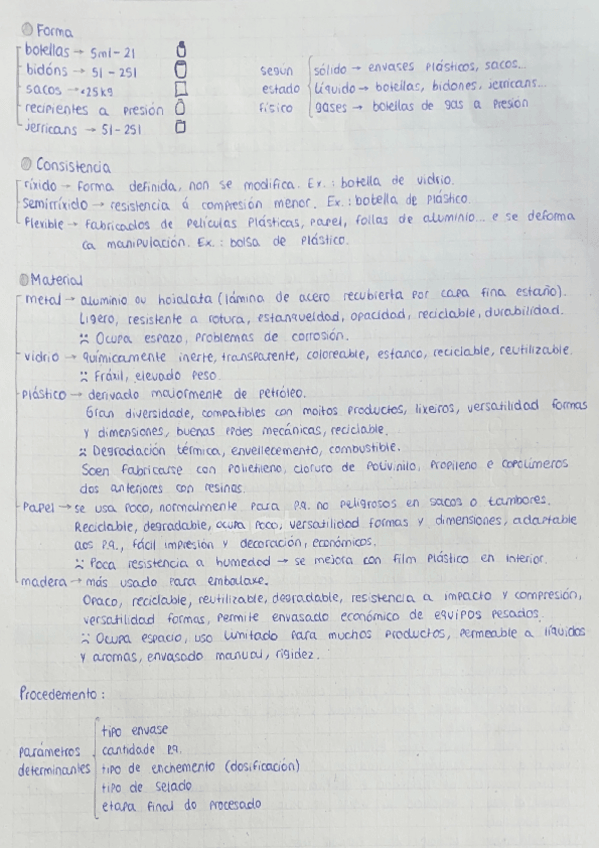 Forma
botellas → 5ml - 2l
bidóns → 5l - 25l
sacos → <25kg
recipientes a presión
jerricans → 5l - 25l
según estado físico
sólido → envases plásticos, sacos..
líquido → botellas, bidones, jerricans...
gases → botellas de gas a presión
Consistencia
ríxido → forma definida, non se modifica. Ex.: botella de vidrio.
semirríxido → resistencia á compresión menor. Ex.: botella de plástico
flexible → fabricados de películas plásticas, papel, follas de aluminio... e se deforma
ca manipulación. Ex.: bolsa de plástico.
Material
metal → aluminio ou hojalata (lámina de acero recubierta por capa fina estaño).
Ligero, resistente a rotura, estanqueidad, opacidad, reciclable, durabilidad.
Ocupa espazo, problemas de corrosión.
vidrio → químicamente inerte, transparente, coloreable, estanco, reciclable, reutilizable
Fráxil, elevado peso
plástico → derivado maiormente de petróleo.
Gran diversidade, compatibles con moitos productos, lixeiros, versatilidad formas
y dimensiones, buenas pdes mecánicas, reciclable.
Degradación térmica, envellecemento, combustible.
Soen fabricarse con polietileno, cloruro de polivinilo, propileno e copolímeros
dos anteriores con resinas
Papel → se usa poco, normalmente para p.q. no peligrosos en sacos o tambores.
Reciclable, degradable, ocupa poco, versatilidad formas y dimensiones, adaptable
aos p.q., fácil impresión y decoración, económicos.
Poca resistencia a humedad → se mejora con film plástico en interior.
madera → más usado para embalaxe.
Opaco, reciclable, reutilizable, degradable, resistencia a impacto y compresión,
versatilidad formas, permite envasado económico de equipos pesados.
Ocupa espacio, uso limitado para muchos productos, permeable a líquidos
y aromas, envasado manual, rigidez.
Procedemento:
parámetros determinantes
tipo envase
cantidade p.q.
tipo de enchemento (dosificación)
tipo de selado
etapa final do procesado